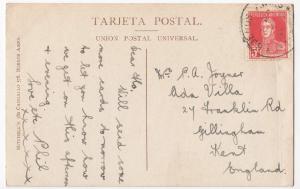 TARJETA POSTAL.
UNION POSTAL UNIVERSAL.
Dear Flo,
Will send some
more cards to-morrow
to let you know how
we get on this afternoon
& evening.
love etc Phil
x x x x
Mrs P. A. Joyner
Ada Villa
27 Franklin Rd
Gillingham
Kent
England.